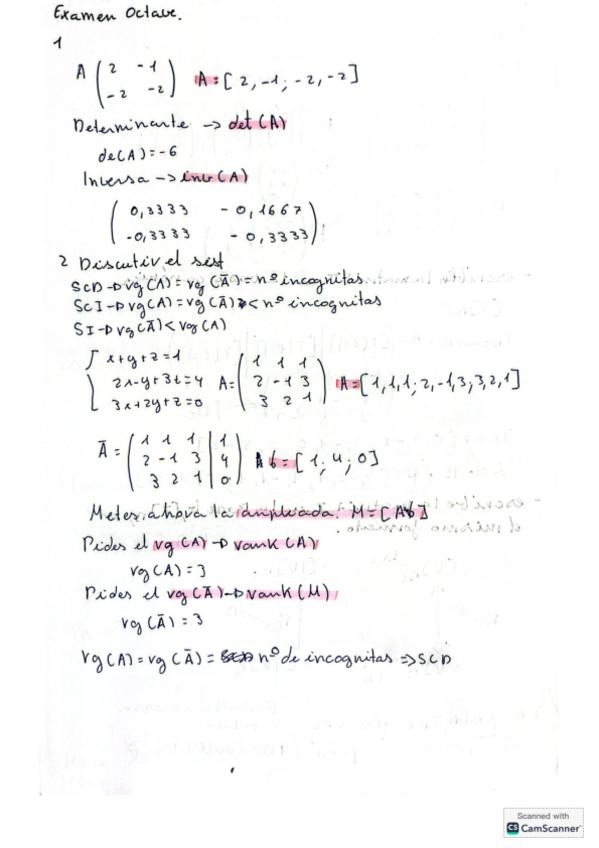 Examen Octave.
1
A ( 2 -1 ; -2 -2 ) A=[2,-1;-2,-2]
Determinante → det(A)
de(A)=-6
Inversa → inv(A)
( 0,3333 -0,1667 ; -0,3333 -0,3333 )
2 Discutir el sist
SCD → rg(A)=rg(Ā)=nº incognitas.
SCI → rg(A)=rg(Ā) < nº incognitas
SI → rg(Ā)<rg(A)
{ x+y+z=1
2x-y+3z=4 A=( 1 1 1 ; 2 -1 3 ; 3 2 1 ) A=[1,1,1;2,-1,3;3,2,1]
3x+2y+z=0
Ā=( 1 1 1 | 1 ; 2 -1 3 | 4 ; 3 2 1 | 0 ) b=[1;4;0]
Metes ahora la ampliada: M=[A b]
Pides el rg(A) → rank(A)
rg(A)=3
Pides el rg(Ā) → rank(M)
rg(Ā)=3
rg(A)=rg(Ā)= nº de incognitas ⇒ SCD
Scanned with
CS CamScanner